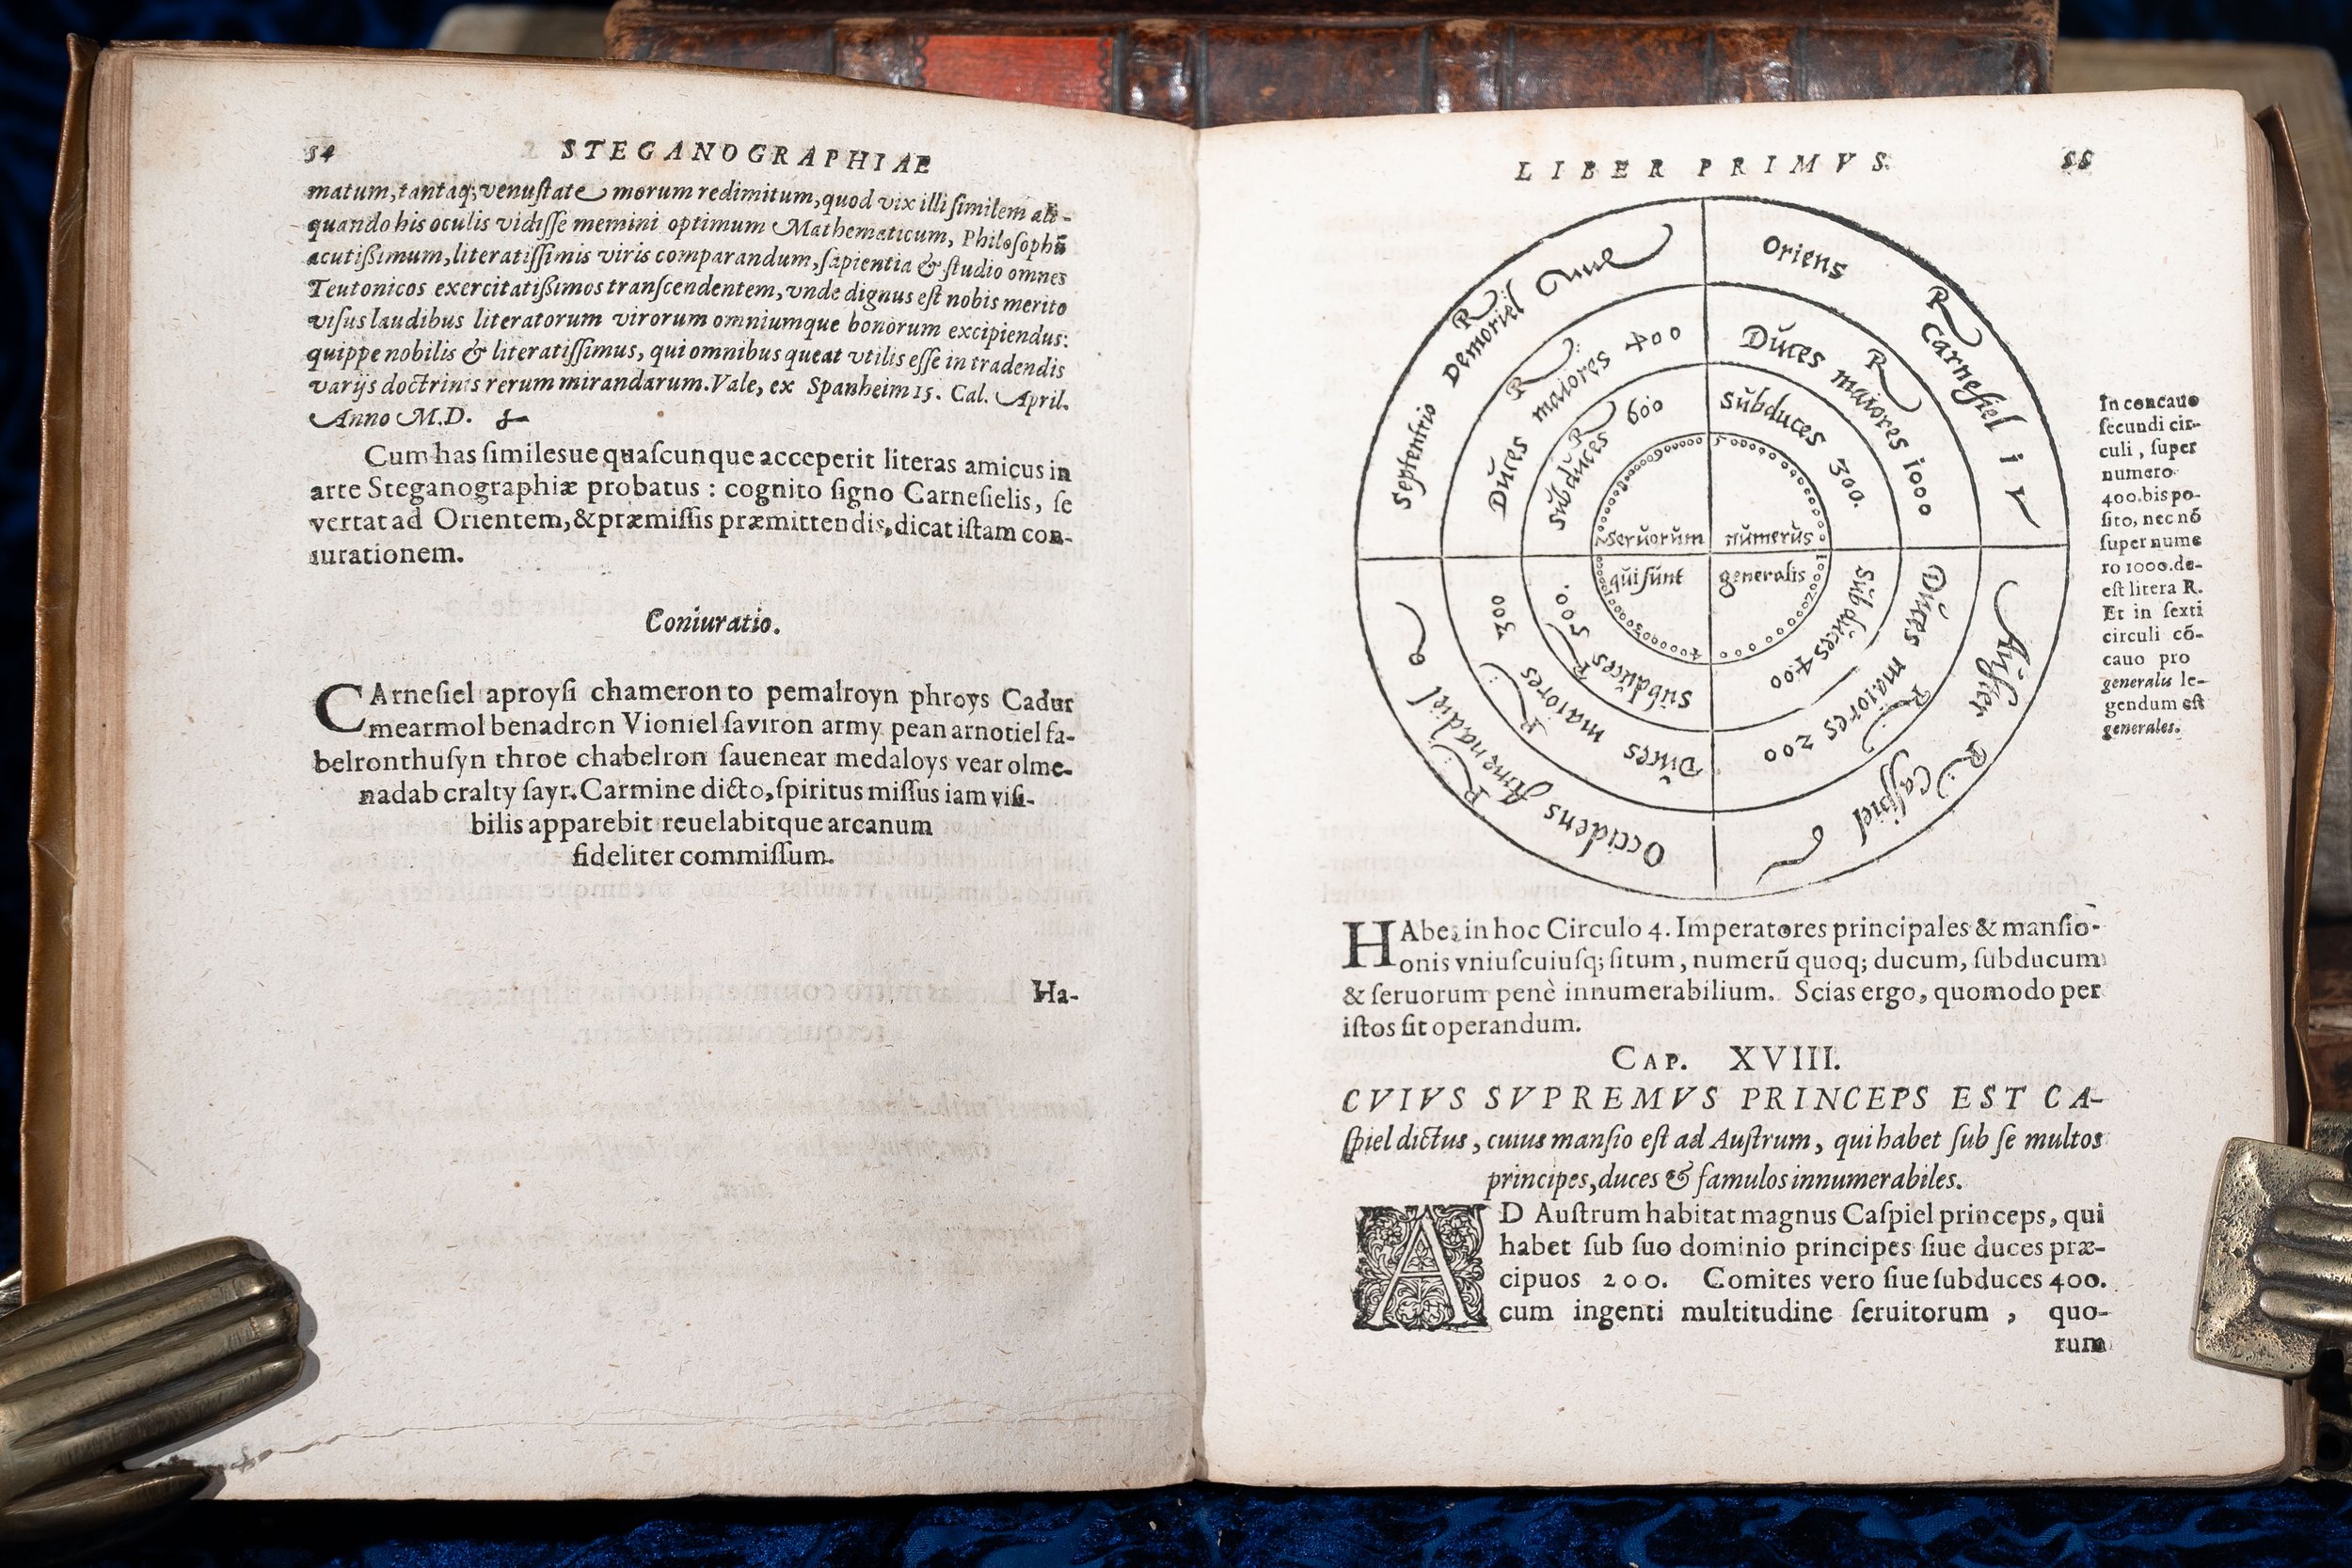 54 STEGANOGRAPHIAE
matum, tantaq; venuſtate morum redimitum, quod vix illi ſimilem ali-
quando his oculis vidiſſe memini optimum Mathematicum, Philoſophū
acutißimum, literatiſſimis viris comparandum, ſapientia & ſtudio omnes
Teutonicos exercitatißimos tranſcendentem, vnde dignus eſt nobis merito
viſus laudibus literatorum virorum omniumque bonorum excipiendus:
quippe nobilis & literatiſſimus, qui omnibus queat vtilis eſſe in tradendis
varijs doctrinis rerum mirandarum. Vale, ex Spanheim 15. Cal. April.
Anno M.D.
Cum has ſimilesue quaſcunque acceperit literas amicus in
arte Steganographiæ probatus : cognito ſigno Carneſielis, ſe
vertat ad Orientem, & præmiſſis præmittendis, dicat iſtam con-
iurationem.
Coniuratio.
CArneſiel aproyſi chameron to pemalroyn phroys Cadur
mearmol benadron Vioniel ſaviron army pean arnotiel fa-
belronthuſyn throe chabelron ſauenear medaloys vear olme-
nadab cralty ſayr. Carmine dicto, ſpiritus miſſus iam viſi-
bilis apparebit reuelabitque arcanum
fideliter commiſſum.
Ha-
LIBER PRIMVS. 55
Oriens
R Carneſiel
Dŭces maiores 1000
R
Sŭbduces 300.
Septentrio
R Demoriel
Dŭces maiores 400
R
Sŭbdŭces 600
R
Seruorŭm nŭmerŭs
qŭi ſŭnt generalis
Auſter
R Caſpiel
Dŭces maiores 200
R
Sŭbdŭces 400
Occidens Amenadiel
R
Dŭces maiores 300
R
Sŭbdŭces 500.
R
In concauo
ſecundi cir-
culi, ſuper
numero
400. bis po-
ſito, nec nō
ſuper nume
ro 1000. de-
eſt litera R.
Et in ſexti
circuli cō-
cauo pro
generalis le-
gendum eſt
generales.
HAbes in hoc Circulo 4. Imperatores principales & manſio-
onis vniuſcuiuſq; ſitum, numerū quoq; ducum, ſubducum
& ſeruorum penè innumerabilium. Scias ergo, quomodo per
iſtos ſit operandum.
CAP. XVIII.
CVIVS SVPREMVS PRINCEPS EST CA-
ſpiel dictus, cuius manſio eſt ad Auſtrum, qui habet ſub ſe multos
principes, duces & famulos innumerabiles.
AD Auſtrum habitat magnus Caſpiel princeps, qui
habet ſub ſuo dominio principes ſiue duces præ-
cipuos 200. Comites vero ſiue ſubduces 400.
cum ingenti multitudine ſeruitorum, quo-
rum